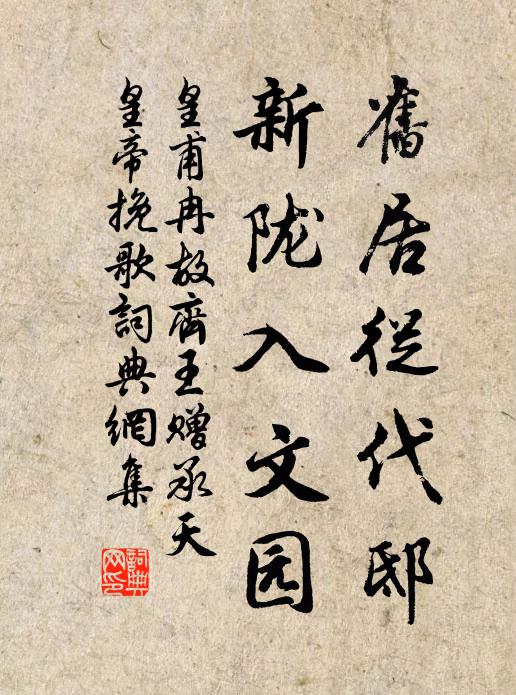 舊居從代邸
新陇入文园
皇甫冉故齊王赠承天
皇帝挽歌詞典網集
詞典网印